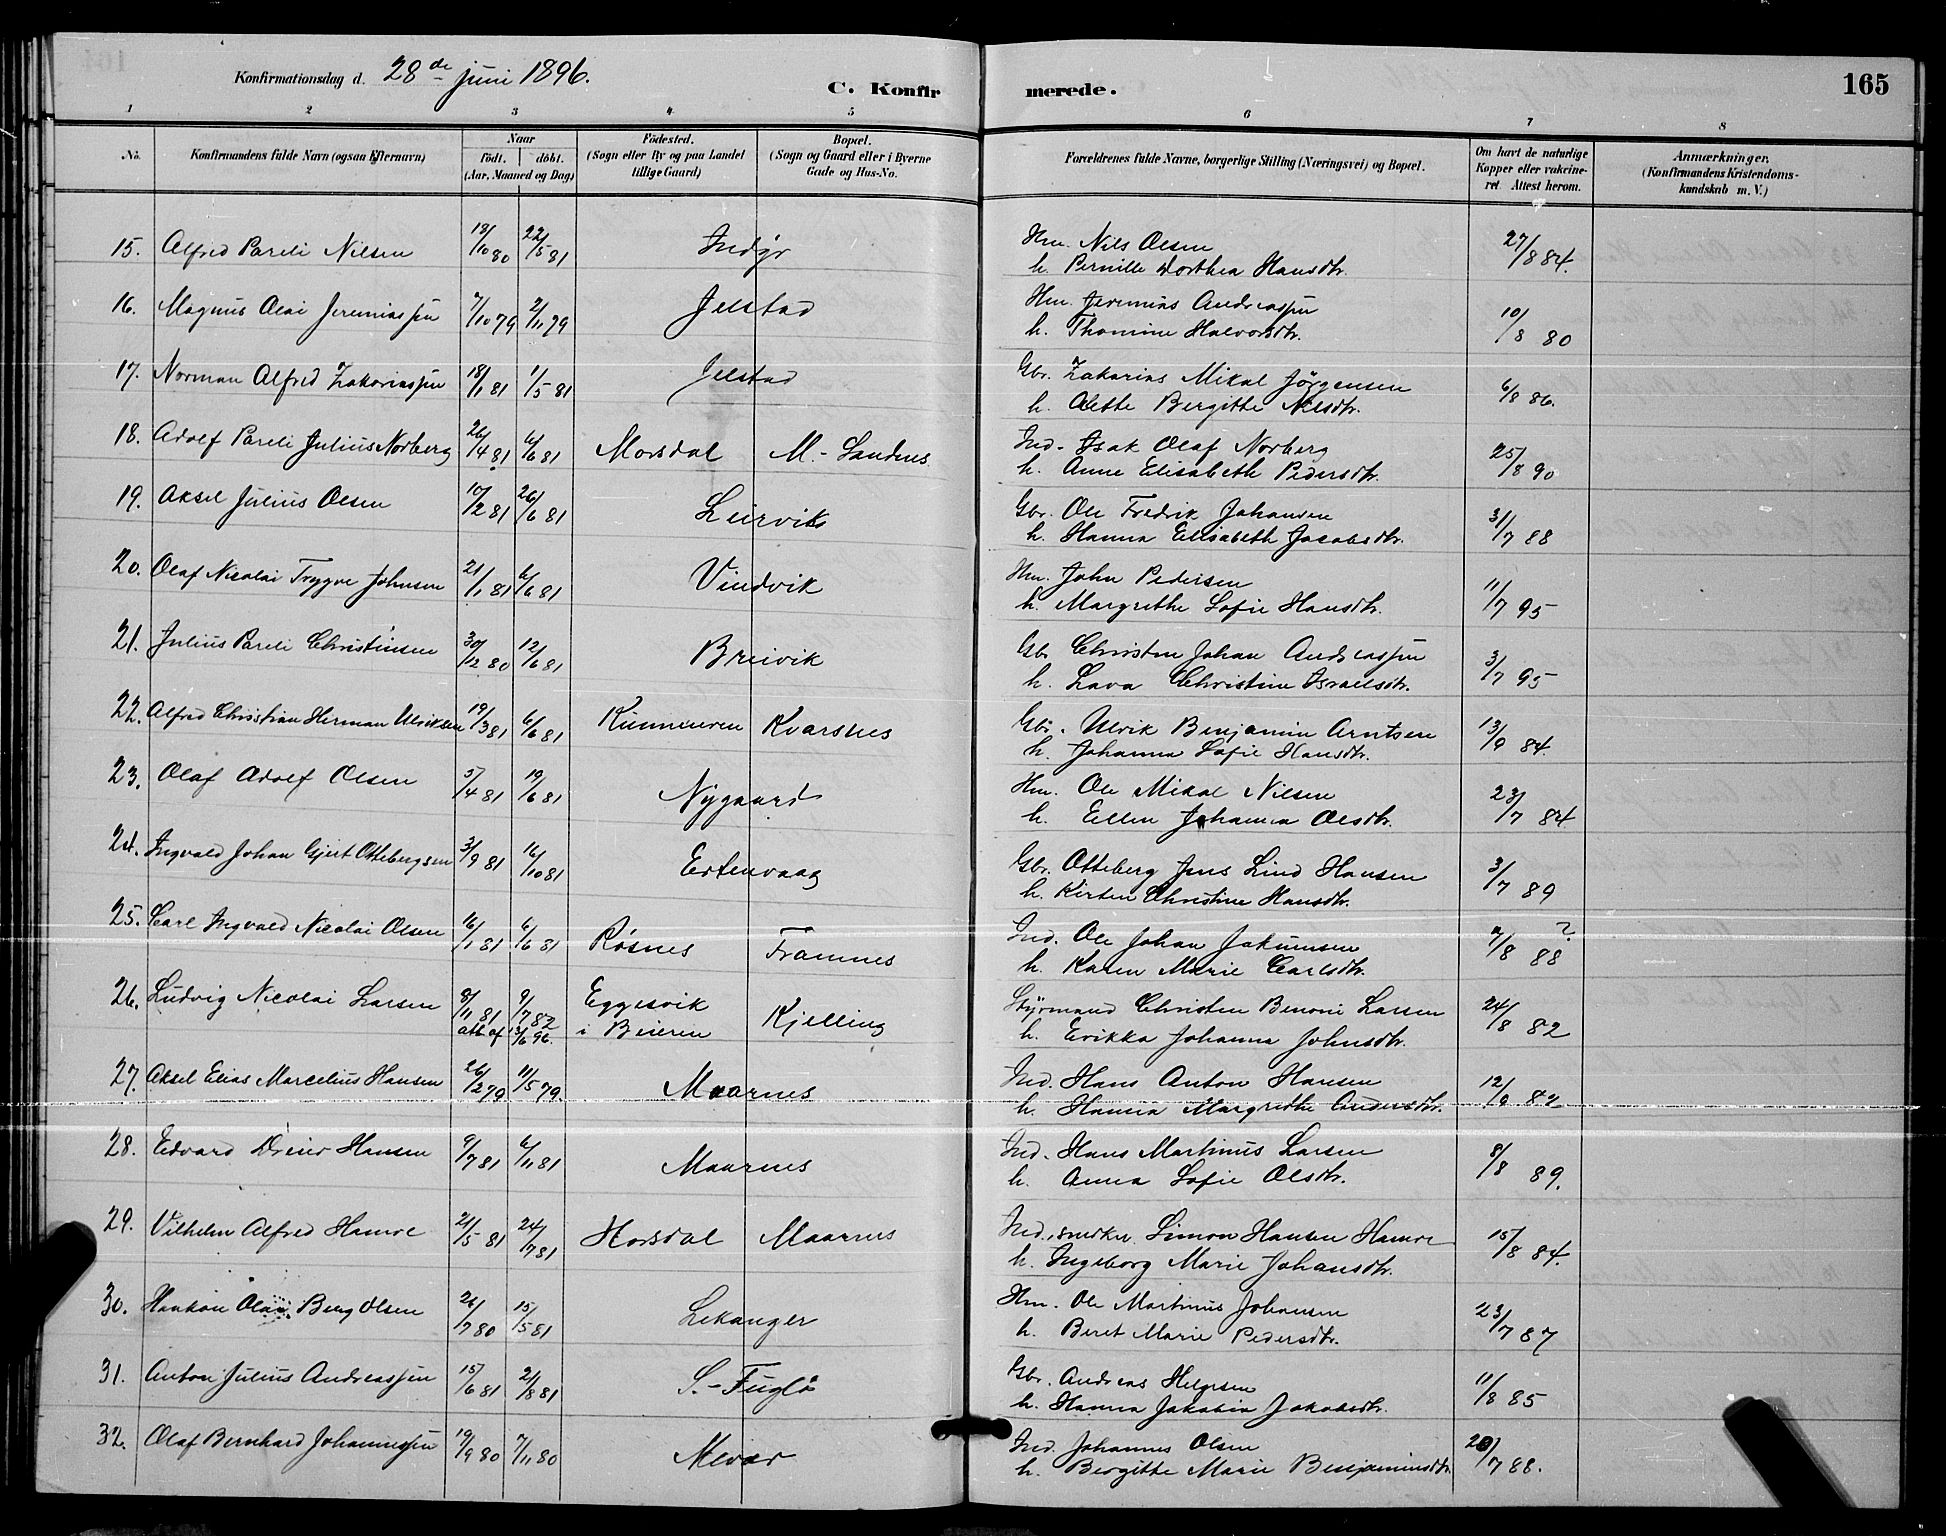 Konfirmationsdag d. 28de juni 1896.
C. Konfirmerede.
165
1 2 3 4 5 6 7 8
No.
Konfirmandens fulde Navn (ogsaa Efternavn)
Naar
födt. döbt.
(Aar, Maaned og Dag)
Födested.
(Sogn eller By og paa Landet
tillige Gaard)
Bopæl.
(Sogn og Gaard eller i Byerne
Gade og Hus-No.
Forældrenes fulde Navne, borgerlige Stilling (Næringsvei) og Bopæl.
Om havt de naturlige
Kopper eller vakcine-
ret. Attest herom.
Anmærkninger,
(Konfirmandens Kristendoms-
kundskab m. V.)
15. Alfred Pareli Nilsen 18/10 80 22/5 81 Indyr Hm. Nils Olsen 27/8 84.
h. Pernille Dorthea Hansdtr.
16. Magnus Olai Jeremiassen 7/10 79 2/11 79 Jelstad Hm. Jeremias Andreassen 10/8 80
h. Thomine Halvorsdtr.
17. Norman Alfred Zakariassen 18/1 81 1/5 81 Jelstad Gbr. Zakarias Mikal Jörgensen 6/8 86.
h. Alette Bergitte Nilsdtr.
18. Adolf Pareli Julius Norberg 26/4 81 6/6 81 Morsdal M-Sandnes Ind. Isak Olaf Norberg 25/8 90
h. Anne Elisabeth Pedersdtr.
19. Aksel Julius Olsen 10/2 81 26/6 81 Leirvik Gbr. Ole Fredrik Johansen 31/7 88
h. Hanna Elisabeth Jacobsdtr.
20. Olaf Nicolai Trygve Johnsen 21/1 81 6/6 81 Vindvik Hm. John Pedersen 11/7 95
h. Margrethe Sofie Hansdtr.
21. Julius Pareli Christensen 30/12 80 12/6 81 Breivik Gbr Christen Johan Andreassen 3/7 95
h. Lava Christine Israelsdtr.
22. Alfred Christian Herman Ulriksen 19/3 81 6/6 81 Kunmeuren Kvarsnes Gbr. Ulrik Benjamin Arntsen 13/9 84.
h. Johanna Sofie Hansdtr.
23. Olaf Adolf Olsen 5/4 81 19/6 81 Nygaard Hm. Ole Mikal Nilsen 23/7 84
h. Ellen Johanna Olsdtr.
24. Ingvald Johan Gjert Ottebergsen 3/9 81 16/10 81 Ertenvaag Gbr. Otteberg Jens Lind Hansen 3/7 89
h. Kirsten Christine Hansdtr.
25. Carl Ingvald Nicolai Olsen 16/1 81 6/6 81 Røsnes Framnes Ind. Ole Johan Jakumsen 7/8 88 ?
h. Karen Marie Carlsdtr.
26. Ludvig Nicolai Larsen 8/11 81 9/7 82 Eggesvik Kjelling Styrmand Christen Benoni Larsen 24/8 82
att. af 13/6 96. i Beieren h. Erikka Johanna Johnsdtr.
27. Aksel Elias Marcelius Hansen 26/2 79 11/5 79. Maarnes Ind. Hans Anton Hansen 12/9 82
h. Hanna Margrethe Andersdtr.
28. Edvard Dreier Hansen 9/7 81 6/11 81 Maarnes Ind. Hans Martinus Larsen 8/8 89.
h. Anna Sofie Olsdtr.
29. Vilhelm Alfred Hamre 21/5 81 24/7 81 Horsdal Maarnes Ind. snedker Simon Hansen Hamre 15/8 84.
h. Ingeborg Marie Johansdtr.
30. Haakon Olai Berg Olsen 26/7 80 15/5 81 Lekanger Hm. Ole Martinus Johansen 23/7 87
h. Beret Marie Pedersdtr.
31. Anton Julius Andreassen 15/6 81 21/8 81 S.-Fuglö Gbr. Andreas Helgesen 11/8 85
h. Hanna Jakobin Jakobsdtr.
32. Olaf Bernhard Johannessen 19/9 80 7/11 80 Mevær Ind. Johannes Olsen 20/7 88.
h. Bergitte Marie Benjaminsdtr.